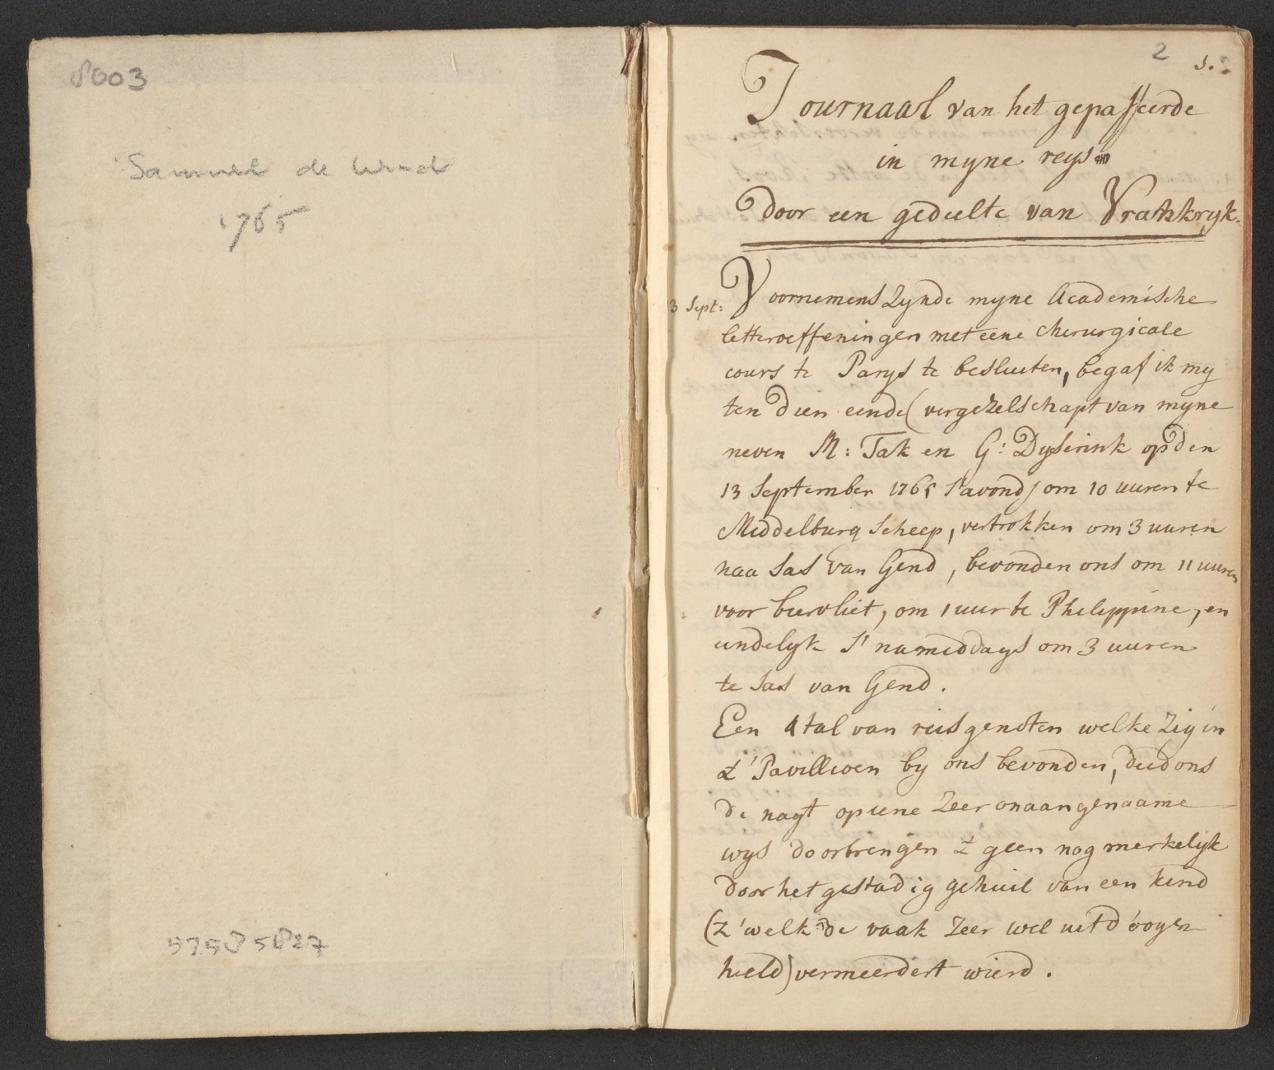 8003
Samuel de Wind
1765
2
Journaal van het gepasseerde
in myne reys
door een gedeelte van Vrankryk.
3 Sept: Voornemens zynde myne Academische
letteroeffeningen met eene chirurgicale
cours te Parys te besluiten, begaf ik my
ten dien einde (vergezelschapt van myne
neven M: Tak en G: Dyserink op den
13 September 1765 s'avonds om 10 uuren te
Middelburg scheep, vertrokken om 3 uuren
naa Sas van Gend, bevonden ons om 11 uuren
voor biervliet, om 1 uur te Philippine, en
eindelyk s' namiddags om 3 uuren
te Sas van Gend.
Een tal van reisgenoten welke zig in
t' Pavillioen by ons bevonden, deed ons
de nagt op eene zeer onaangenaame
wys doorbrengen t geen nog merkelyk
door het gestadig gehuil van een kind
(t' welk de vaak zeer wel uit d'oogen
hield) vermeerdert wierd.